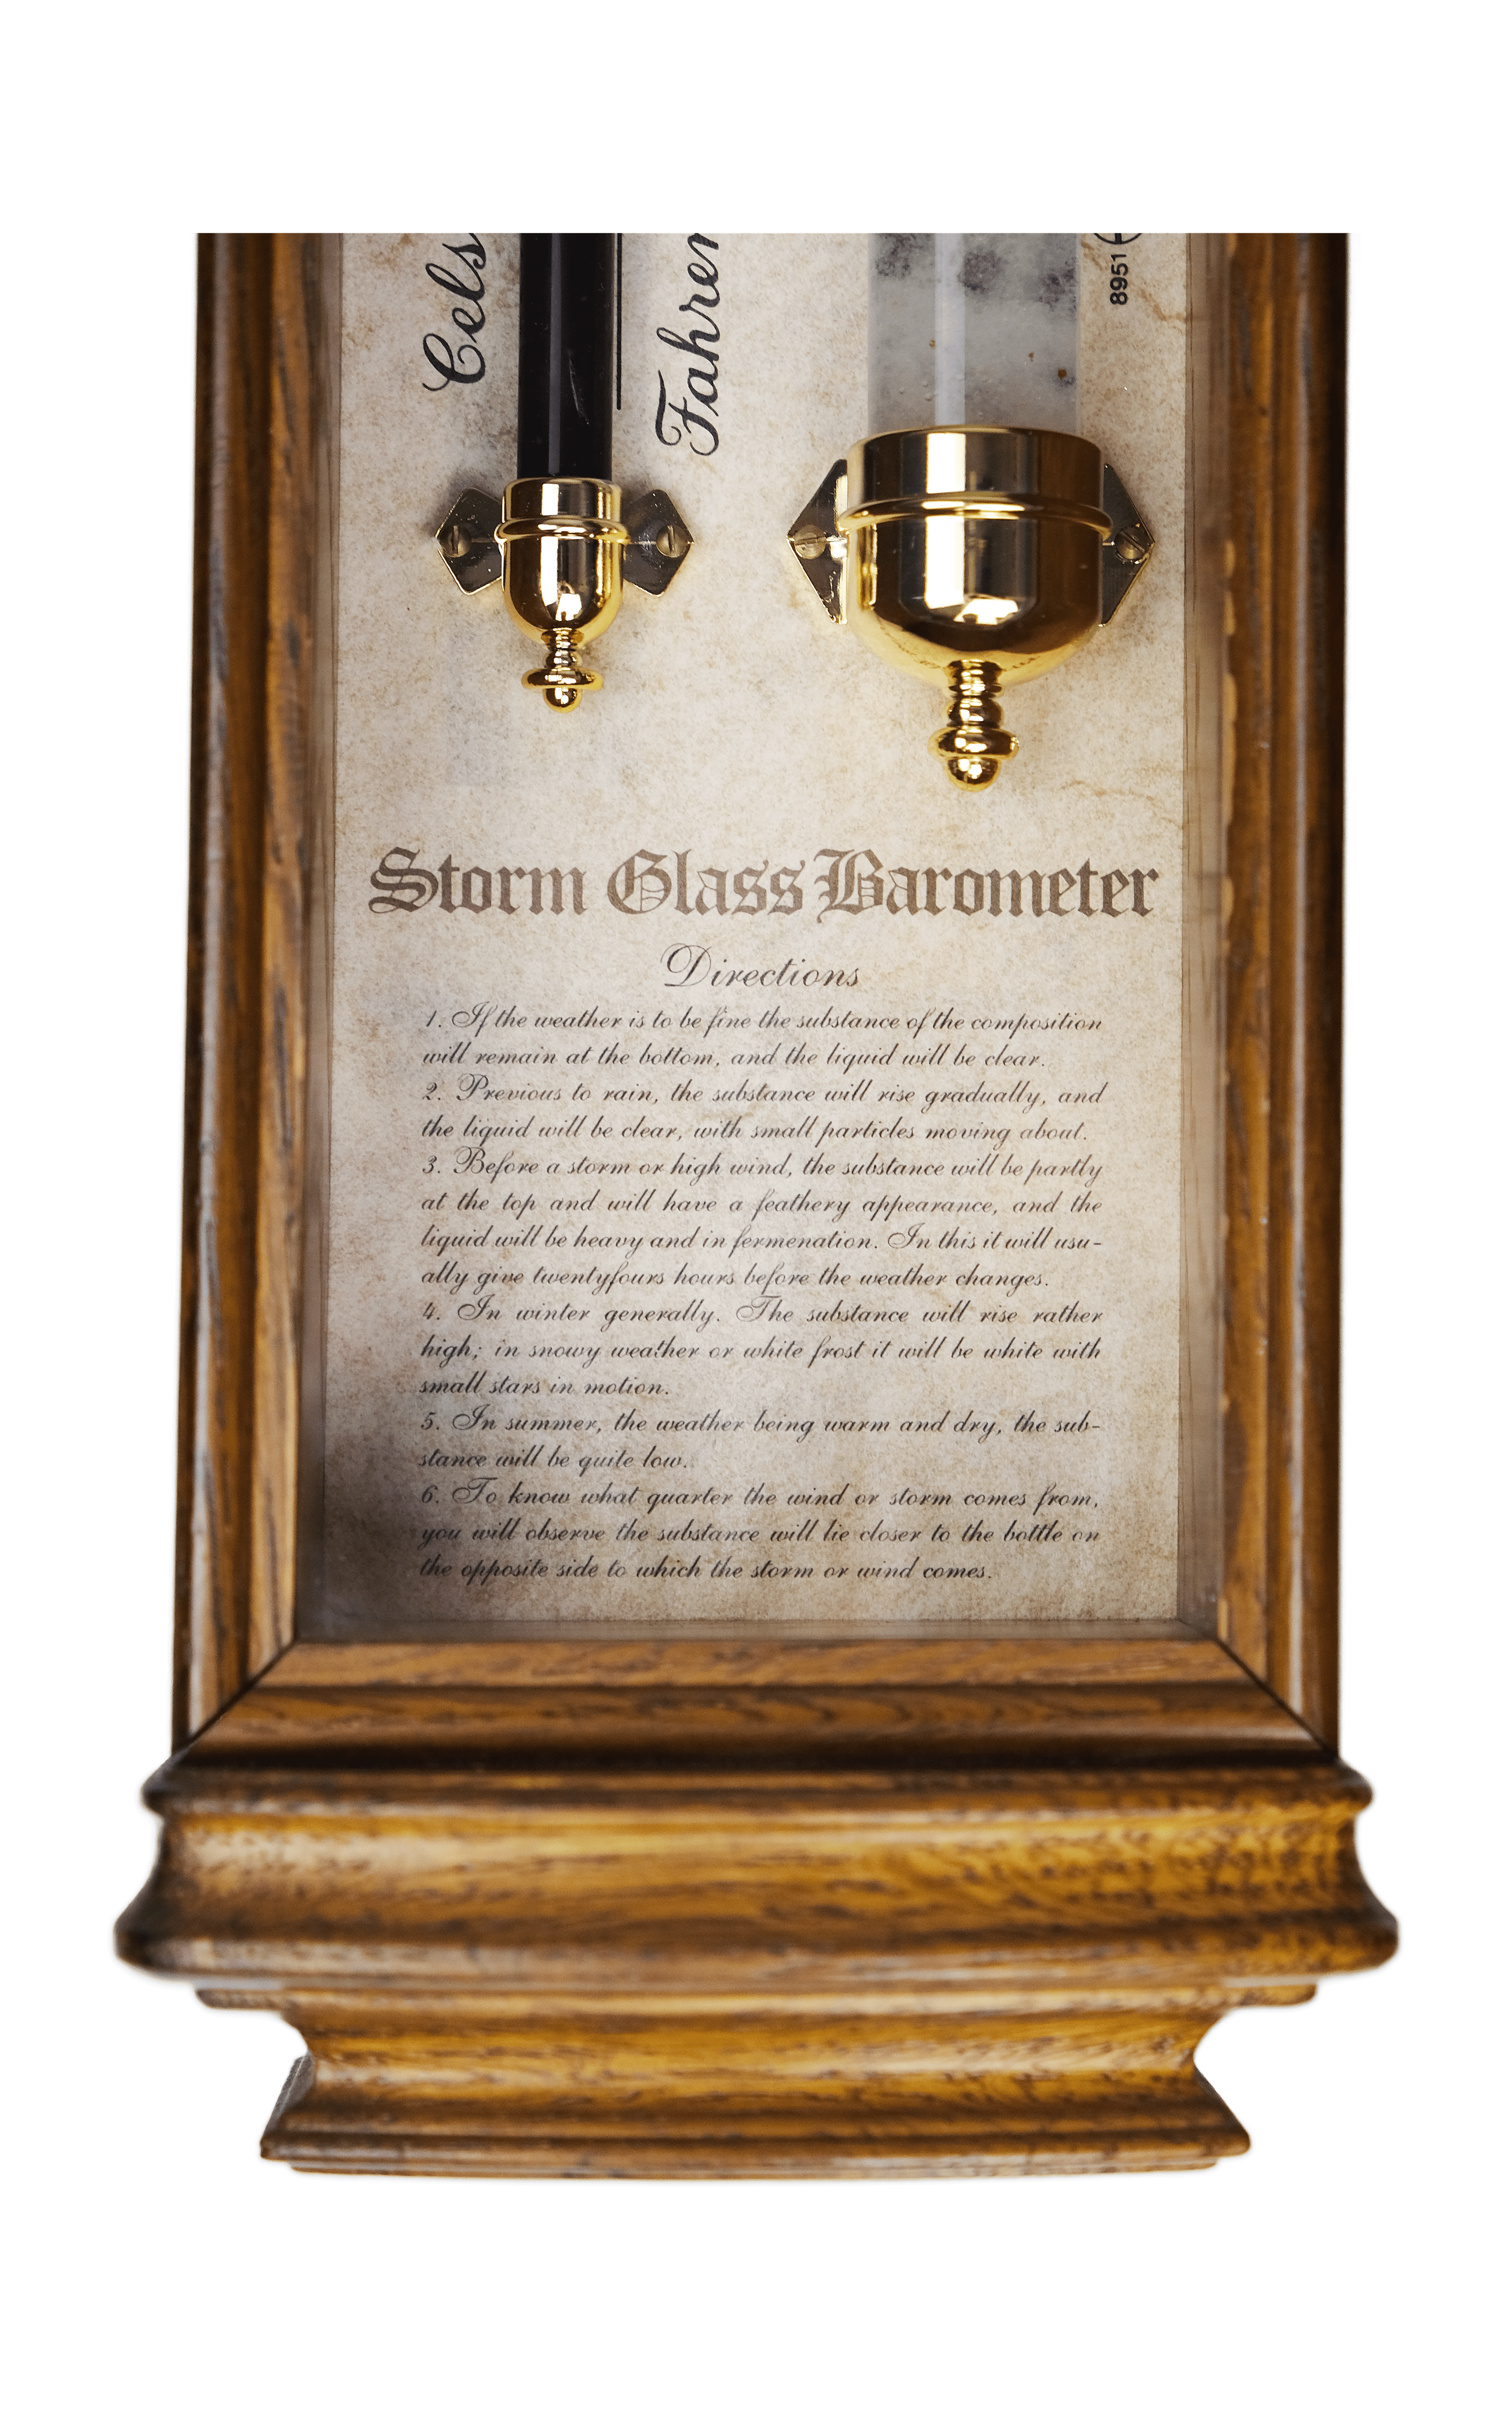 Cels
Fahren
8951
Storm Glass Barometer
Directions
1. If the weather is to be fine the substance of the composition
will remain at the bottom, and the liquid will be clear.
2. Previous to rain, the substance will rise gradually, and
the liquid will be clear, with small particles moving about.
3. Before a storm or high wind, the substance will be partly
at the top and will have a feathery appearance, and the
liquid will be heavy and in fermenation. In this it will usu-
ally give twentyfours hours before the weather changes.
4. In winter generally. The substance will rise rather
high; in snowy weather or white frost it will be white with
small stars in motion.
5. In summer, the weather being warm and dry, the sub-
stance will be quite low.
6. To know what quarter the wind or storm comes from,
you will observe the substance will lie closer to the bottle on
the opposite side to which the storm or wind comes.